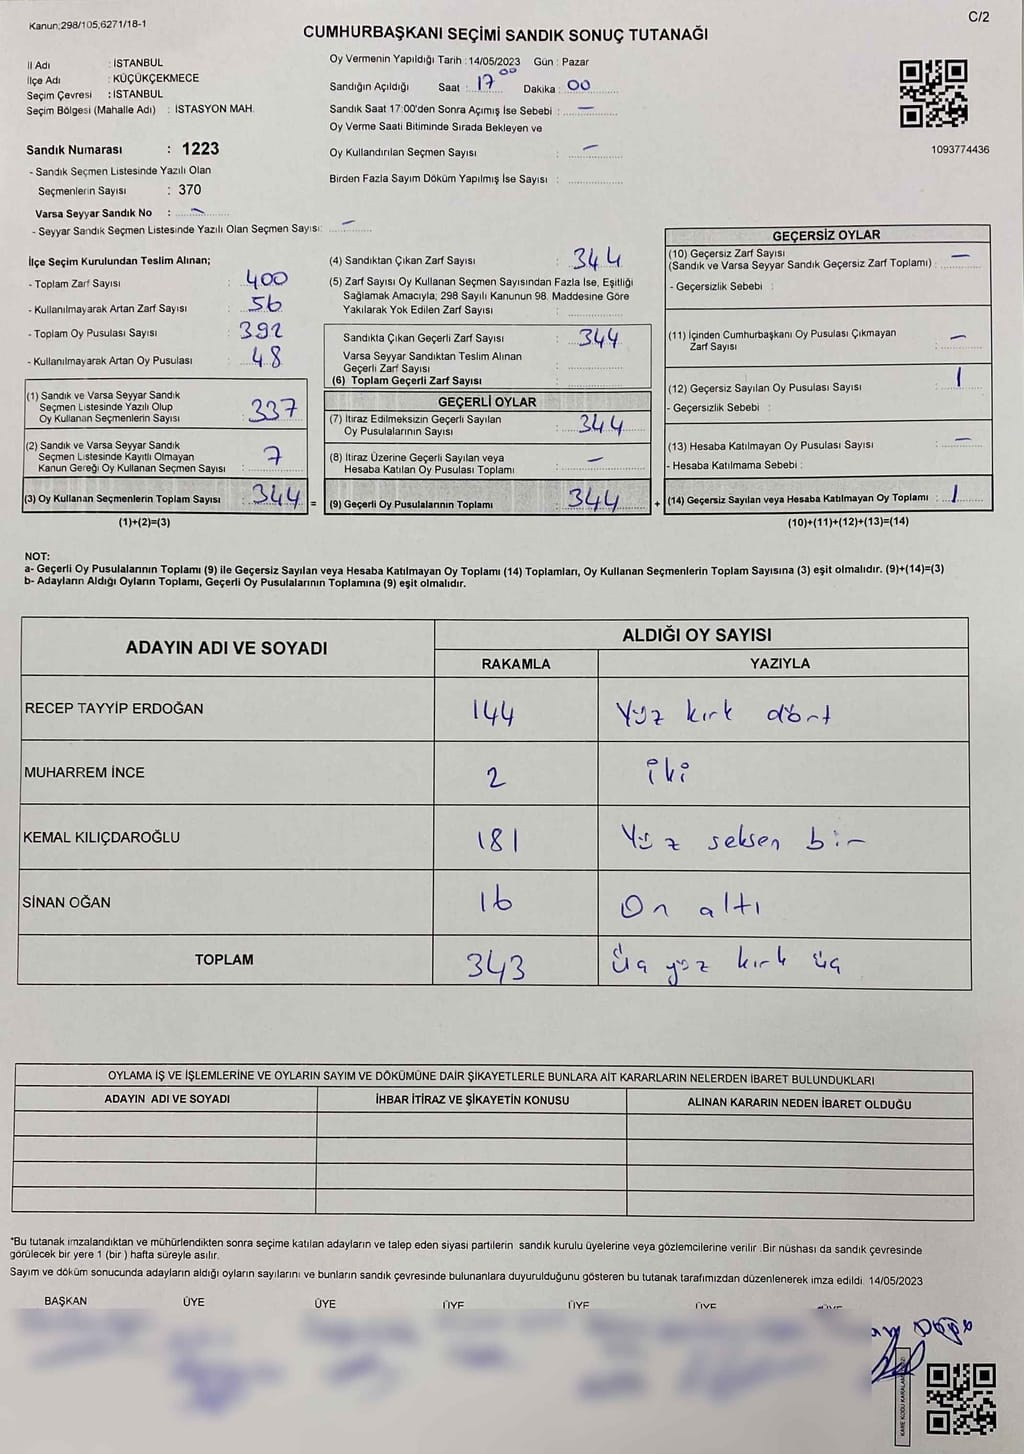 Kanun;298/105,6271/18-1
C/2
CUMHURBAŞKANI SEÇİMİ SANDIK SONUÇ TUTANAĞI
İl Adı : İSTANBUL
İlçe Adı : KÜÇÜKÇEKMECE
Seçim Çevresi : İSTANBUL
Seçim Bölgesi (Mahalle Adı) : İSTASYON MAH.
Sandık Numarası : 1223
- Sandık Seçmen Listesinde Yazılı Olan
Seçmenlerin Sayısı : 370
Varsa Seyyar Sandık No : -
- Seyyar Sandık Seçmen Listesinde Yazılı Olan Seçmen Sayısı: -
Oy Vermenin Yapıldığı Tarih : 14/05/2023 Gün : Pazar
Sandığın Açıldığı Saat : 17 00 Dakika : 00
Sandık Saat 17:00'den Sonra Açımış İse Sebebi : -
Oy Verme Saati Bitiminde Sırada Bekleyen ve
Oy Kullandırılan Seçmen Sayısı : -
Birden Fazla Sayım Döküm Yapılmış İse Sayısı :
1093774436
İlçe Seçim Kurulundan Teslim Alınan;
- Toplam Zarf Sayısı : 400
- Kullanılmayarak Artan Zarf Sayısı : 56
- Toplam Oy Pusulası Sayısı : 392
- Kullanılmayarak Artan Oy Pusulası : 48
(1) Sandık ve Varsa Seyyar Sandık
Seçmen Listesinde Yazılı Olup
Oy Kullanan Seçmenlerin Sayısı : 337
(2) Sandık ve Varsa Seyyar Sandık
Seçmen Listesinde Kayıtlı Olmayan
Kanun Gereği Oy Kullanan Seçmen Sayısı : 7
(3) Oy Kullanan Seçmenlerin Toplam Sayısı : 344 =
(1)+(2)=(3)
(4) Sandıktan Çıkan Zarf Sayısı : 344
(5) Zarf Sayısı Oy Kullanan Seçmen Sayısından Fazla İse, Eşitliği
Sağlamak Amacıyla; 298 Sayılı Kanunun 98. Maddesine Göre
Yakılarak Yok Edilen Zarf Sayısı :
Sandıkta Çıkan Geçerli Zarf Sayısı : 344
Varsa Seyyar Sandıktan Teslim Alınan
Geçerli Zarf Sayısı :
(6) Toplam Geçerli Zarf Sayısı :
GEÇERLİ OYLAR
(7) İtiraz Edilmeksizin Geçerli Sayılan
Oy Pusulalarının Sayısı : 344
(8) İtiraz Üzerine Geçerli Sayılan veya
Hesaba Katılan Oy Pusulası Toplamı : -
(9) Geçerli Oy Pusulalarının Toplamı : 344 +
GEÇERSİZ OYLAR
(10) Geçersiz Zarf Sayısı
(Sandık ve Varsa Seyyar Sandık Geçersiz Zarf Toplamı) : -
- Geçersizlik Sebebi :
(11) İçinden Cumhurbaşkanı Oy Pusulası Çıkmayan
Zarf Sayısı : -
(12) Geçersiz Sayılan Oy Pusulası Sayısı : 1
- Geçersizlik Sebebi :
(13) Hesaba Katılmayan Oy Pusulası Sayısı : -
- Hesaba Katılmama Sebebi :
(14) Geçersiz Sayılan veya Hesaba Katılmayan Oy Toplamı : 1
(10)+(11)+(12)+(13)=(14)
NOT:
a- Geçerli Oy Pusulalarının Toplamı (9) ile Geçersiz Sayılan veya Hesaba Katılmayan Oy Toplamı (14) Toplamları, Oy Kullanan Seçmenlerin Toplam Sayısına (3) eşit olmalıdır. (9)+(14)=(3)
b- Adayların Aldığı Oyların Toplamı, Geçerli Oy Pusulalarının Toplamına (9) eşit olmalıdır.
ADAYIN ADI VE SOYADI
ALDIĞI OY SAYISI
RAKAMLA YAZIYLA
RECEP TAYYİP ERDOĞAN 144 Yüz kırk dört
MUHARREM İNCE 2 iki
KEMAL KILIÇDAROĞLU 181 Yüz seksen bir
SİNAN OĞAN 16 On altı
TOPLAM 343 Üç yüz kırk üç
OYLAMA İŞ VE İŞLEMLERİNE VE OYLARIN SAYIM VE DÖKÜMÜNE DAİR ŞİKAYETLERLE BUNLARA AİT KARARLARIN NELERDEN İBARET BULUNDUKLARI
ADAYIN ADI VE SOYADI İHBAR İTİRAZ VE ŞİKAYETİN KONUSU ALINAN KARARIN NEDEN İBARET OLDUĞU
*Bu tutanak imzalandıktan ve mühürlendikten sonra seçime katılan adayların ve talep eden siyasi partilerin sandık kurulu üyelerine veya gözlemcilerine verilir .Bir nüshası da sandık çevresinde
görülecek bir yere 1 (bir ) hafta süreyle asılır.
Sayım ve döküm sonucunda adayların aldığı oyların sayılarını ve bunların sandık çevresinde bulunanlara duyurulduğunu gösteren bu tutanak tarafımızdan düzenlenerek imza edildi. 14/05/2023
BAŞKAN ÜYE ÜYE ÜYE ÜYE ÜYE